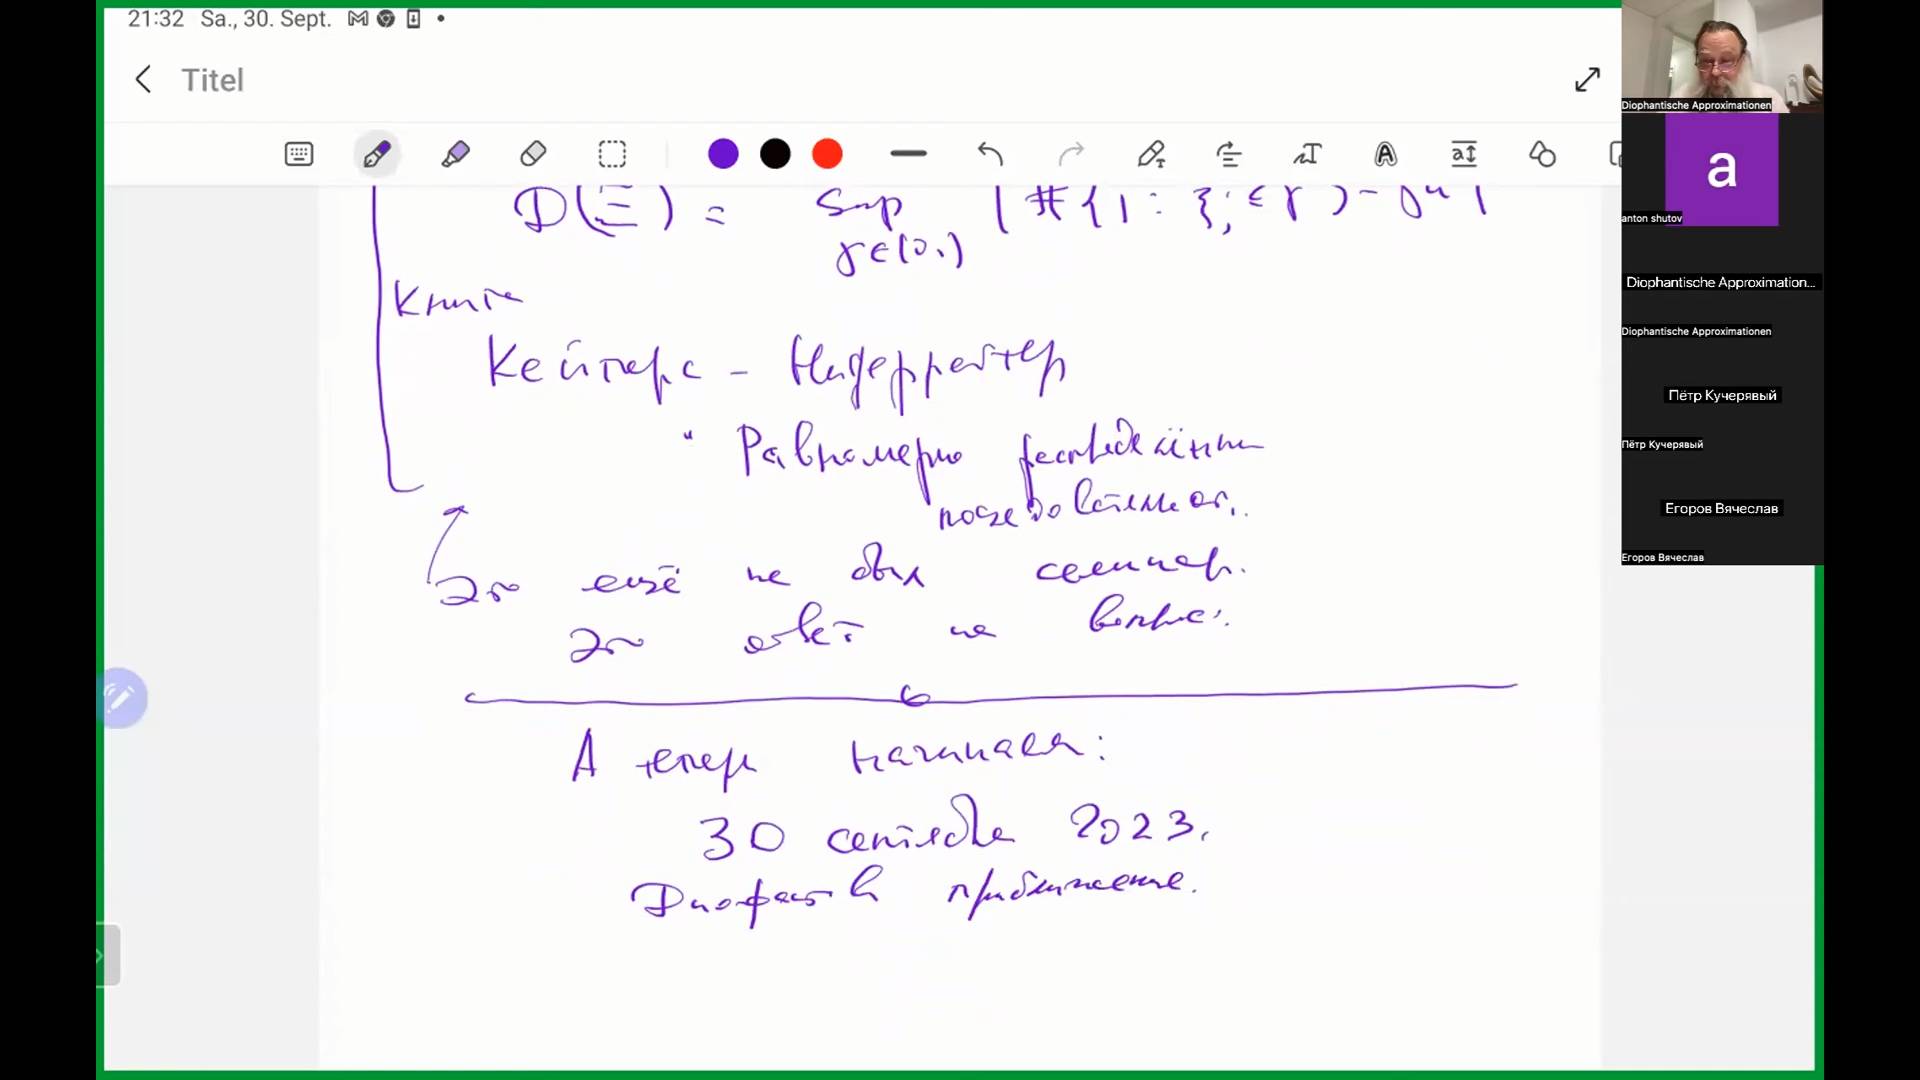 21:32 Sa., 30. Sept.
Titel
D(Ξ) = Sup | #{j : ξ_j ∈ γ
γ∈(0,)
Книга
Кейперс - Нидеррейтер
" Равномерно
это ещё не был семинар.
это ответ на вопрос.
А теперь начинаем:
30 сентября 2023.
приближение.
Diophantische Approximationen
a
anton shutov
Diophantische Approximation...
Diophantische Approximationen
Пётр Кучерявый
Пётр Кучерявый
Егоров Вячеслав
Егоров Вячеслав